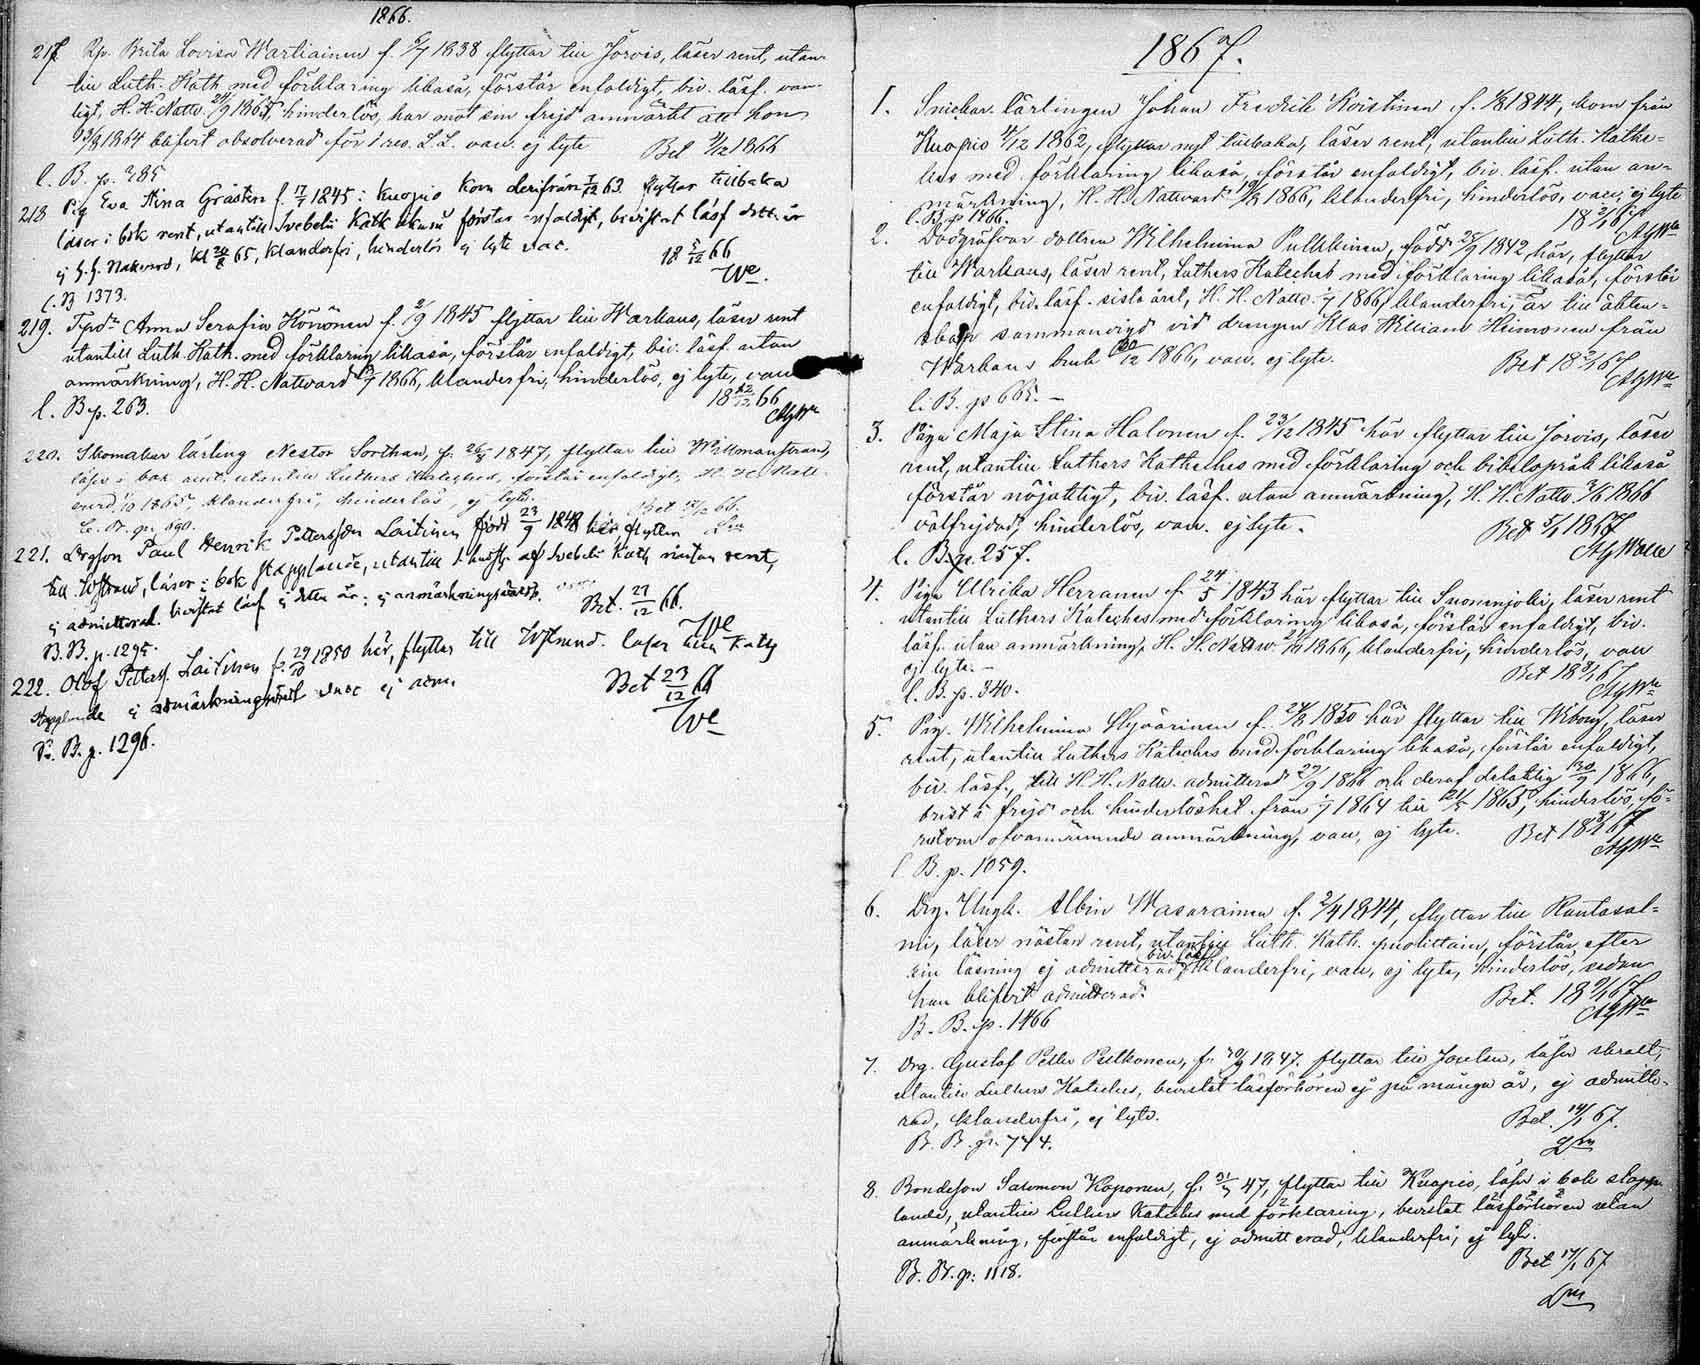 1866.
217 Pp. Brita Lovisa Wartiainen f. 5/7 1838 flyttar till Jorois, läser rent, utan-
till Luth. Kath. med förklaring likaså, förstår enfaldigt, biv. läsf. van-
ligt, H. H. Nattv. 24/9 1865, hinderlös, har emot sin frejd anmärkt att hon
13/8 1864 blifvit absolverad för 1 res. L. L. vacc. ej lyte Bet 3/12 1866
l. B. p. 785
218 Pig Eva Stina Gråsten f. 17/7 1845 i Kuopio kom derifrån 7/12 63 flyttar tillbaka
läser i bok rent, utantill Svebelii Kath likaså förstår enfaldigt, bevistat läsf detta år
ej H. H. Nattvard, kl 24/8 65, klanderfri, hinderlös ej lyte vac. 18 5/12 66
We.
l. B 1373.
219. Anna Serafia Könönen f. 2/9 1845 flyttar till Warkaus, läser rent
utantill Luth. Kath. med förklaring likaså, förstår enfaldigt, biv. läsf. utan
anmärkning, H. H. Nattvard 1866, klanderfri, hinderlös, ej lyte, vacc
18 12/12 66
l. B p. 263. AgWe
220. Skomakar lärling Nestor Sorthan, f. 26/8 1847, flyttar till Willmanstrand,
läser i bok rent, utantill Luthers Kateches, förstår enfaldigt, H. H. Natt-
vard 1865, klanderfri, hinderlös, ej lyte. Bet 12/12 66.
l. B. p. 890.
221. Drgson Paul Henrik Pettersson Laitinen född 23/9 1848 här flyttar
till Wstrand, läser i bok stapplande, utantill af Svebelii Kath nästan rent,
ej admitterad bevistat läsf ej detta år; ej anmärkningsvärdt. Bet. 27/12 66.
B. B. p. 1295. We
222. Olof Petterss. Laitinen f. 29/10 1850 här, flyttar till Wstrand. läser utur Kath
stapplande ej anmärkningsvärdt vacc ej adm. Bet 23/12 66
We
B. B. p. 1296.
1867.
1. Snickar lärlingen Johan Fredrik Koistinen f. 1844, kom från
Kuopio 4/12 1862, flyttar nu tillbaka, läser rent, utantill Luth. Kathe-
kes med förklaring likaså, förstår enfaldigt, biv. läsf. utan an-
märkning, H. H. Nattvard 1866, klanderfri, hinderlös, vacc, ej lyte
l. B. p 1466. 18 2/1 67 AgWe
2. Dödgräfvar dottren Wilhelmina Pulkkinen, född 25/9 1842, här, flyttar
till Warkaus, läser rent, Luthers Kateches med förklaring likaså, förstår
enfaldigt, biv. läsf. sista året, H. H. Nattv. 1866, klanderfri, är till äkten-
skap sammanvigd vid drengen Klas William Heimonen från
Warkaus bruk 30/12 1866, vacc. ej lyte. Bet 18 2/1 67
l. B. p 665. – AgWe
3. Pigan Maja Stina Halonen f. 23/12 1845 här flyttar till Jorois, läser
rent, utantill Luthers Katheches med förklaring och bibelspråk likaså
förstår nöjaktigt, biv. läsf. utan anmärkning, H. H. Nattv. 3/6 1866
välfrejdad, hinderlös, vacc. ej lyte. Bet 5/1 1867
l. B. p. 257. AgWelle
4. Pigan Ulrika Herranen f. 24/5 1843 här flyttar till Suonenjoki, läser rent
utantill Luthers Kateches med förklaring likaså, förstår enfaldigt, biv.
läsf. utan anmärkning, H. H. Nattv. 1866, klanderfri, hinderlös, vacc
ej lyte. – Bet 18 8/1 67
l. B. p. 340. AgWe
5. Pig. Wilhelmina Hyvärinen f. 1850 här flyttar till Wiborg, läser
rent, utantill Luthers Kateches med förklaring likaså, förstår enfaldigt,
biv. läsf., till H. H. Nattv. admitterad 29/9 1866 och deraf delaktig 30/9 1866,
brist å frejd och hinderlöshet från 1864 till 1865, hinderlös, fö-
rutom ofvannämnde anmärkning, vacc, ej lyte. Bet 18 8/1 67
l. B. p. 1059. AgWe
6. Drg. Ungk. Albin Wasarainen f. 2/4 1844, flyttar till Rantasal-
mi, läser nästan rent, utantill Luth. Kath. puolittain, förstår efter
sin läsning ej admitterad, biv. läsf. klanderfri, vacc, ej lyte, hinderlös, sedan
han blifvit admitterad. Bet. 18 9/1 67
B. B. p. 1466 AgWe
7. Drg. Gustaf Petter Pelkonen, f. 1847. flyttar till Joensu, läser svralt,
utantill Luthers Kateches, bevistat läsförhören ej på många år, ej admitte-
rad, klanderfri, ej lyte. Bet. 14/1 67.
B. B. p. 744.
8. Bondeson Salomon Koponen, f. 47, flyttar till Kuopio, läser i bok stapp-
lande, utantill Luthers Kateches med förklaring, bevistat läsförhören utan
anmärkning, förstår enfaldigt, ej admitterad, klanderfri, ej lyte.
B. B. p: 1118. Bet 17/1 67